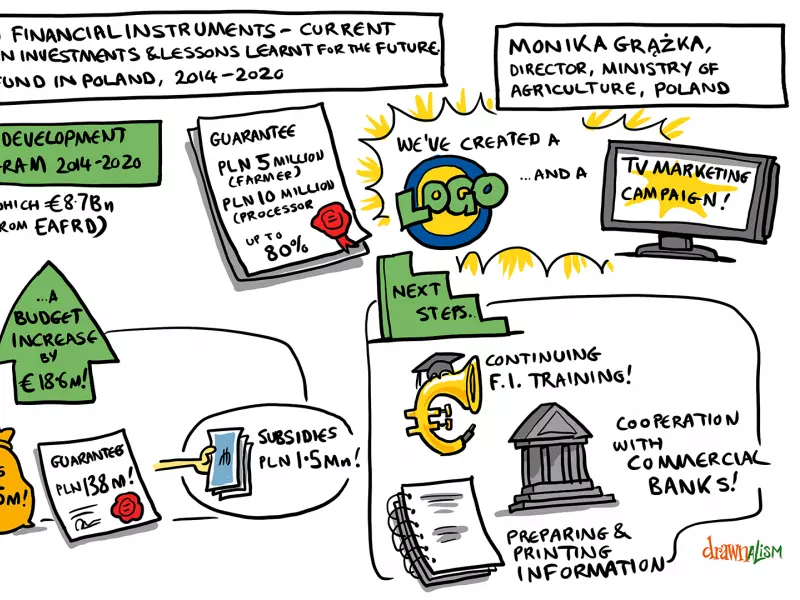 FINANCIAL INSTRUMENTS - CURRENT
N INVESTMENTS & LESSONS LEARNT FOR THE FUTURE.
FUND IN POLAND, 2014-2020
MONIKA GRĄŻKA,
DIRECTOR, MINISTRY OF
AGRICULTURE, POLAND
DEVELOPMENT
RAM 2014-2020
WHICH €8.7Bn
ROM EAFRD)
GUARANTEE
PLN 5 MILLION
(FARMER)
PLN 10 MILLION
(PROCESSOR
UP TO
80%
WE'VE CREATED A
LOGO
...AND A
TV MARKETING
CAMPAIGN!
...A
BUDGET
INCREASE
BY
€18.6M!
S
M!
GUARANTEE
PLN 138M!
SUBSIDIES
PLN 1.5Mn!
NEXT
STEPS..
CONTINUING
F.I. TRAINING!
COOPERATION
WITH
COMMERCIAL
BANKS!
PREPARING &
PRINTING
INFORMATION
drawnALISM